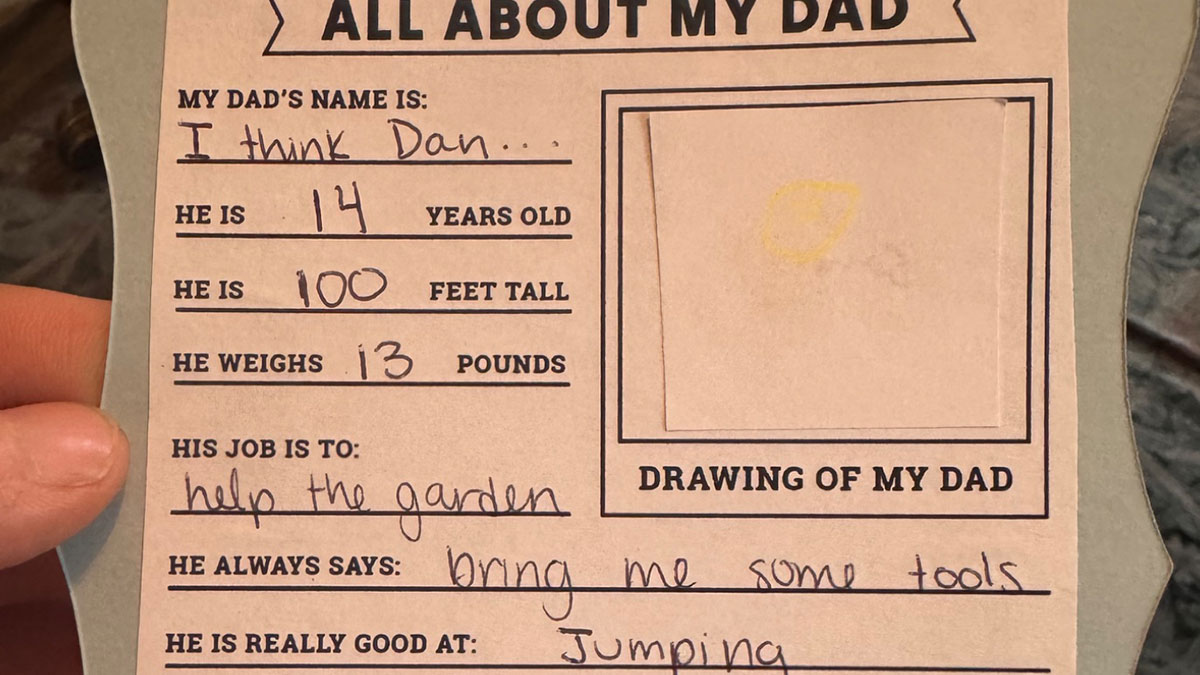 ALL ABOUT MY DAD
MY DAD'S NAME IS:
I think Dan...
HE IS 14 YEARS OLD
HE IS 100 FEET TALL
HE WEIGHS 13 POUNDS
HIS JOB IS TO:
help the garden
DRAWING OF MY DAD
HE ALWAYS SAYS: bring me some tools
HE IS REALLY GOOD AT: Jumping